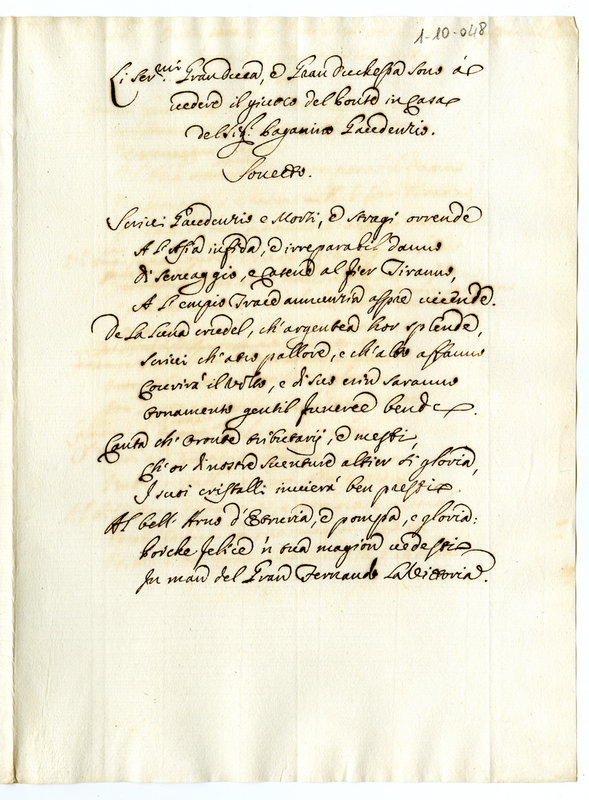 1-10-048
Li Ser.mi Granduca, e Gran Duchessa sono à
vedere il giuoco del Ponte in Casa
del Sig.r Paganino Gaudenzio.
Sonetto.
Scrivi Gaudenzio e Morti, e stragi orrende
A l'Asia infida, e irreparabil danno
di servaggio, e Catene al fier Tiranno,
A l'empio Trace annunzia aspre vicende.
De la Luna crudel, ch'argentea hor splende,
scrivi ch'atro pallore, e ch'alto affanno
Couvrirà il Volto, e di suo crin saranno
Ornamento gentil funeree bende.
Canta ch'Oronte tributarij, e mesti,
Ch'or di nostre sventure altier si gloria,
I suoi cristalli invierà ben presti
Al bell'Arno d'Etruria, e pompa, e gloria:
Porche felice in tua magion vedesti
In man del Gran Fernando La Vittoria.